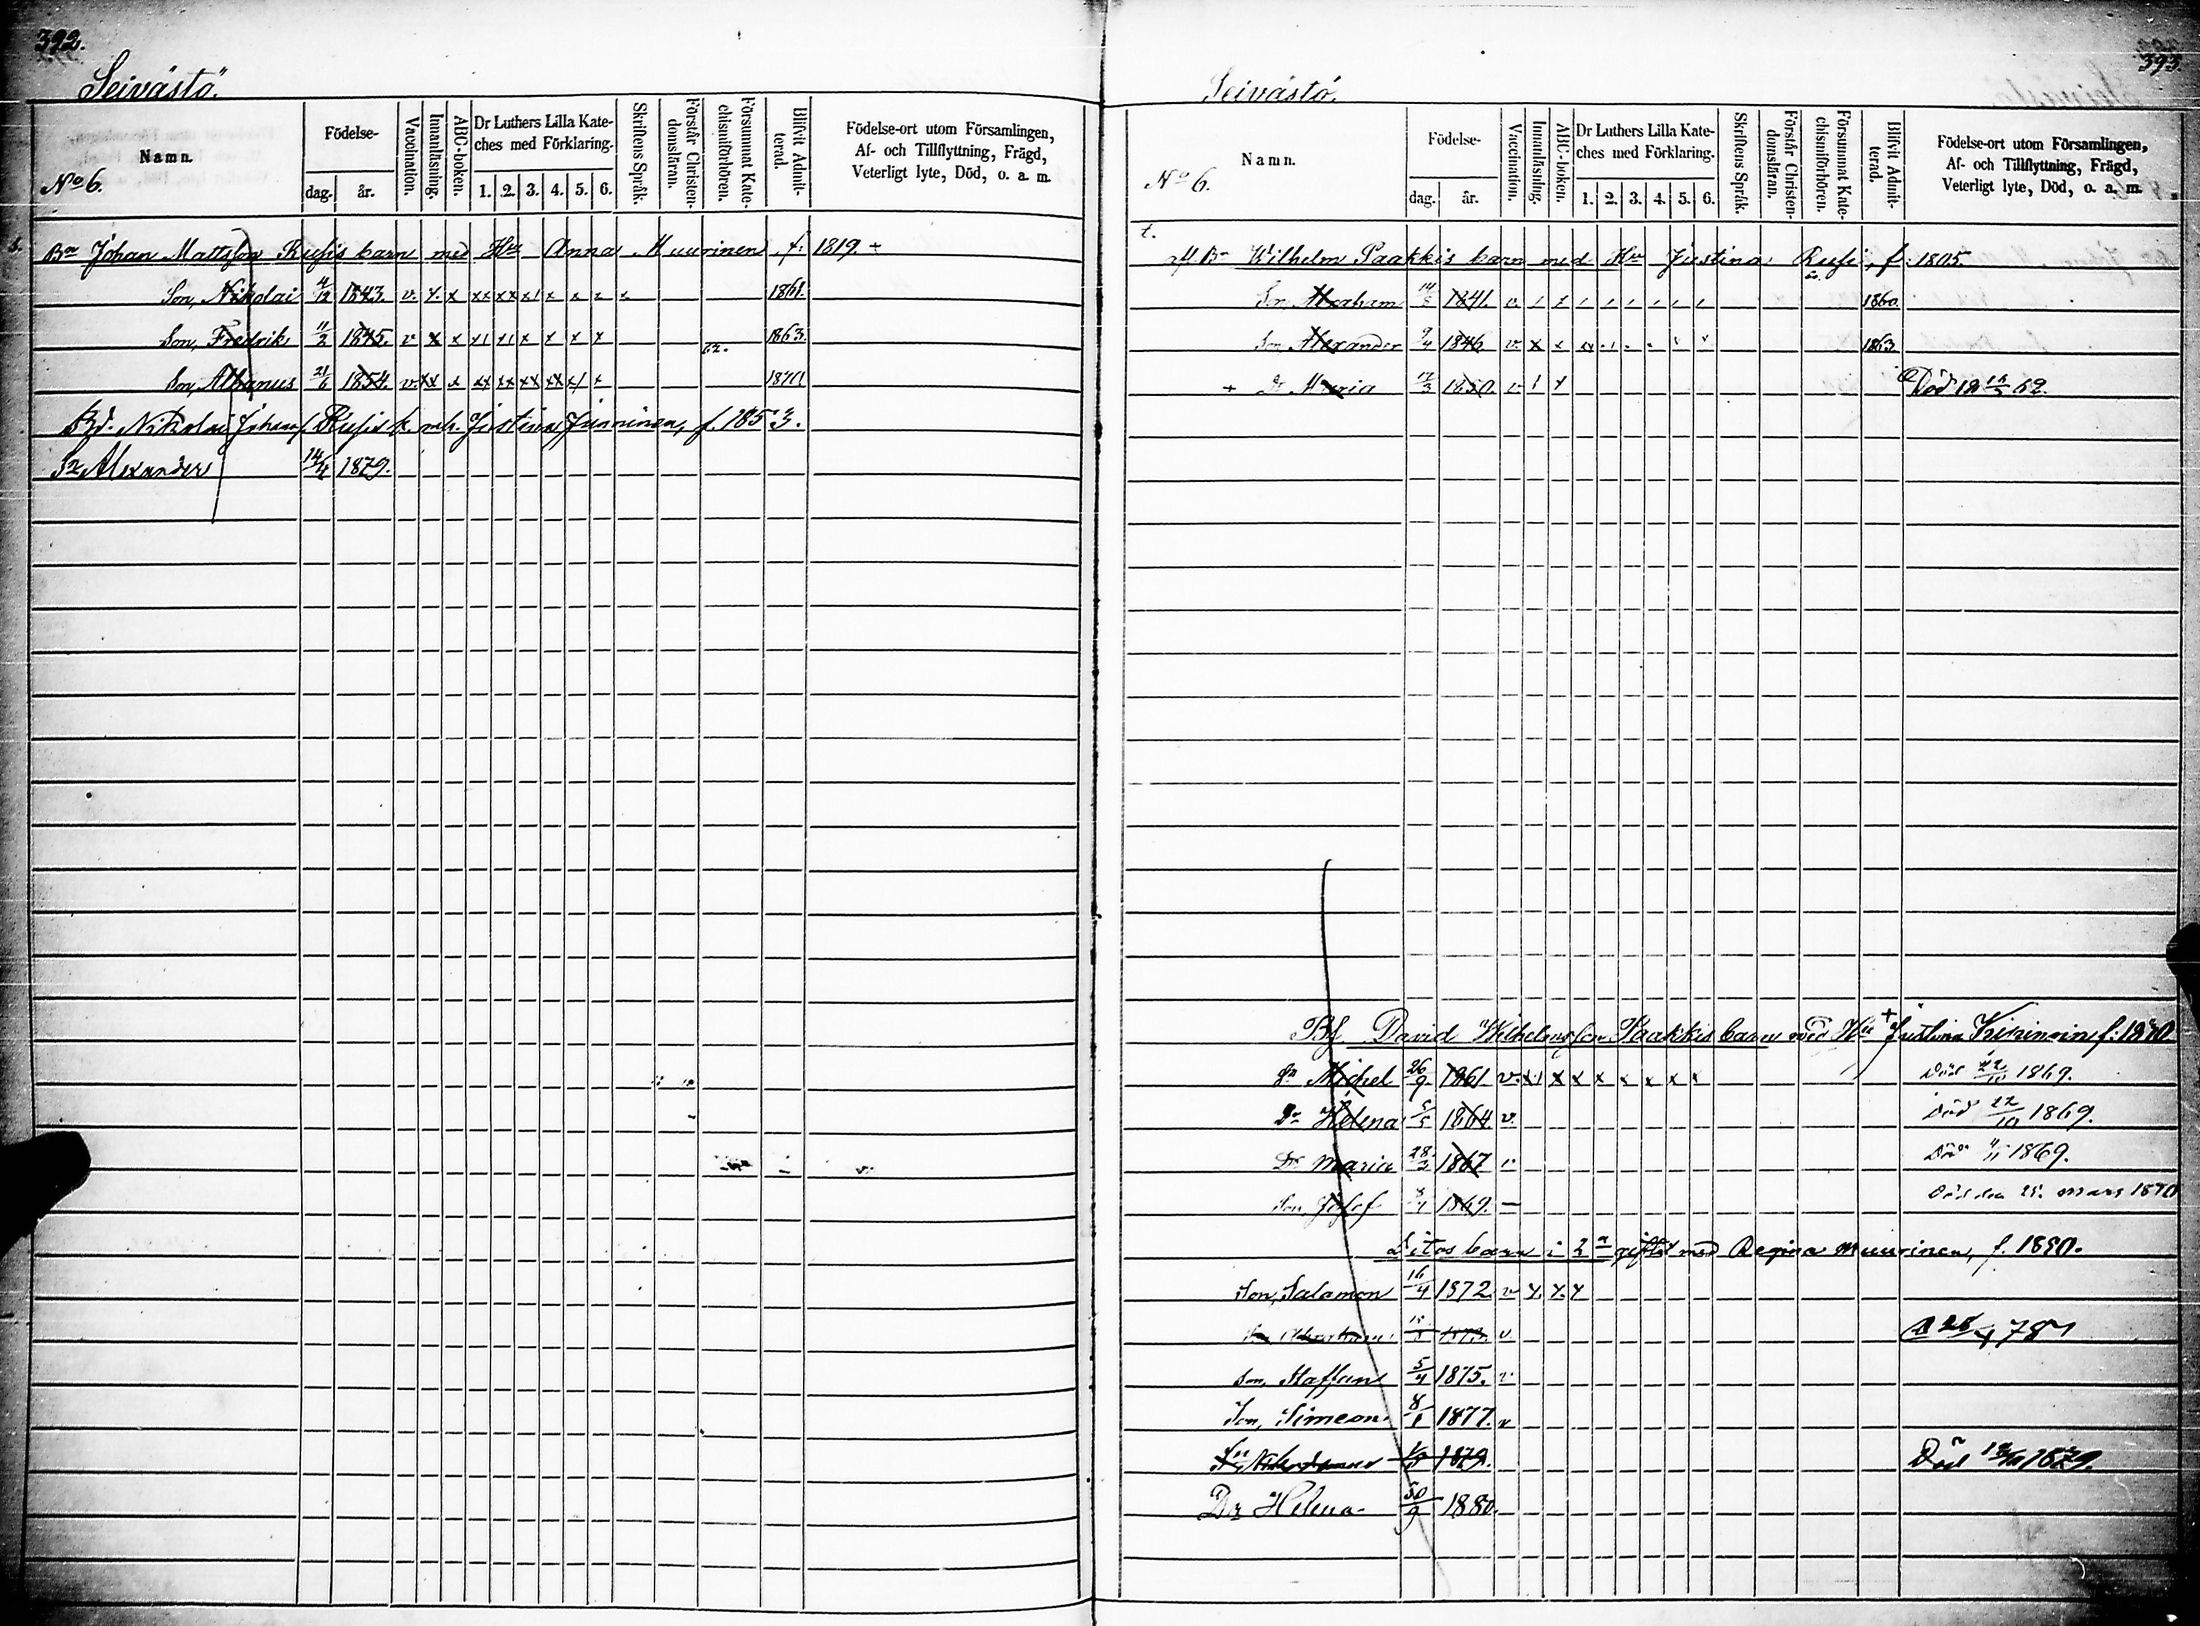 392.
Seivästö.
Namn.
No 6.
Födelse-
dag.
år.
Vaccination.
Innanläsning.
ABC-boken.
Dr Luthers Lilla Kate-
ches med Förklaring.
1. 2. 3. 4. 5. 6.
Skriftens Språk.
Förstår Christen-
domsläran.
Försummat Kate-
chismiförhören.
Blifvit Admit-
terad.
Födelse-ort utom Församlingen,
Af- och Tillflyttning, Frägd,
Veterligt lyte, Död, o. a. m.
Bn Johan Mattsson Rusis barn med Hu Anna Muurinen, f: 1819. +
Son, Nikolai 4/12 1843. v. x x xx xx x1 x x x x 1861.
Son, Fredrik 11/2 1845. v x x x1 x1 x x x x 62. 1863.
Son, Albanus 21/6 1854. v. xx x xx xx xx xx x1 x 1870
Bd. Nikolai Johans. Rusis b. m. h. Justina Junninen, f. 1853.
Sn Alexander 14/4 1879.
393.
Seivästö.
Namn.
No 6.
Födelse-
dag.
år.
Vaccination.
Innanläsning.
ABC-boken.
Dr Luthers Lilla Kate-
ches med Förklaring.
1. 2. 3. 4. 5. 6.
Skriftens Språk.
Förstår Christen-
domsläran.
Försummat Kate-
chismiförhören.
Blifvit Admit-
terad.
Födelse-ort utom Församlingen,
Af- och Tillflyttning, Frägd,
Veterligt lyte, Död, o. a. m.
t.
afl. Bn Wilhelm Paakkis barn med Hu Justina Rusi, f: 1805.
Son, Abraham 14/5 1841. v. 1860
Son, Alexander 9/4 1846 v. x x 1863
+ Dr Maria 17/3 1850. v. Död 62.
Bf. David Wilhelmsson Paakkis barn med Hu + Justina Kiininin f: 1840
Sn Michel 26/9 1861 v. x x x x x x x x Död 22/10 1869.
Dr Helena 5/5 1864 v. Död 22/10 1869.
Dr Maria 28/3 1867 v. Död 4/11 1869.
Son, Josef 1869. — Död den 25. mars 1870
Ditos barn i 2a giftet med Regina Muurinen, f. 1850.
Son, Salamon 16/4 1872 v x x x
Son Abraham 1873. v. D 28/4 78
Son, Staffan 5/4 1875. v
Son, Simeon 8/1 1877. v
Sn Nikodemus 1879. Död 1879.
Dr Helena 30/9 1880.